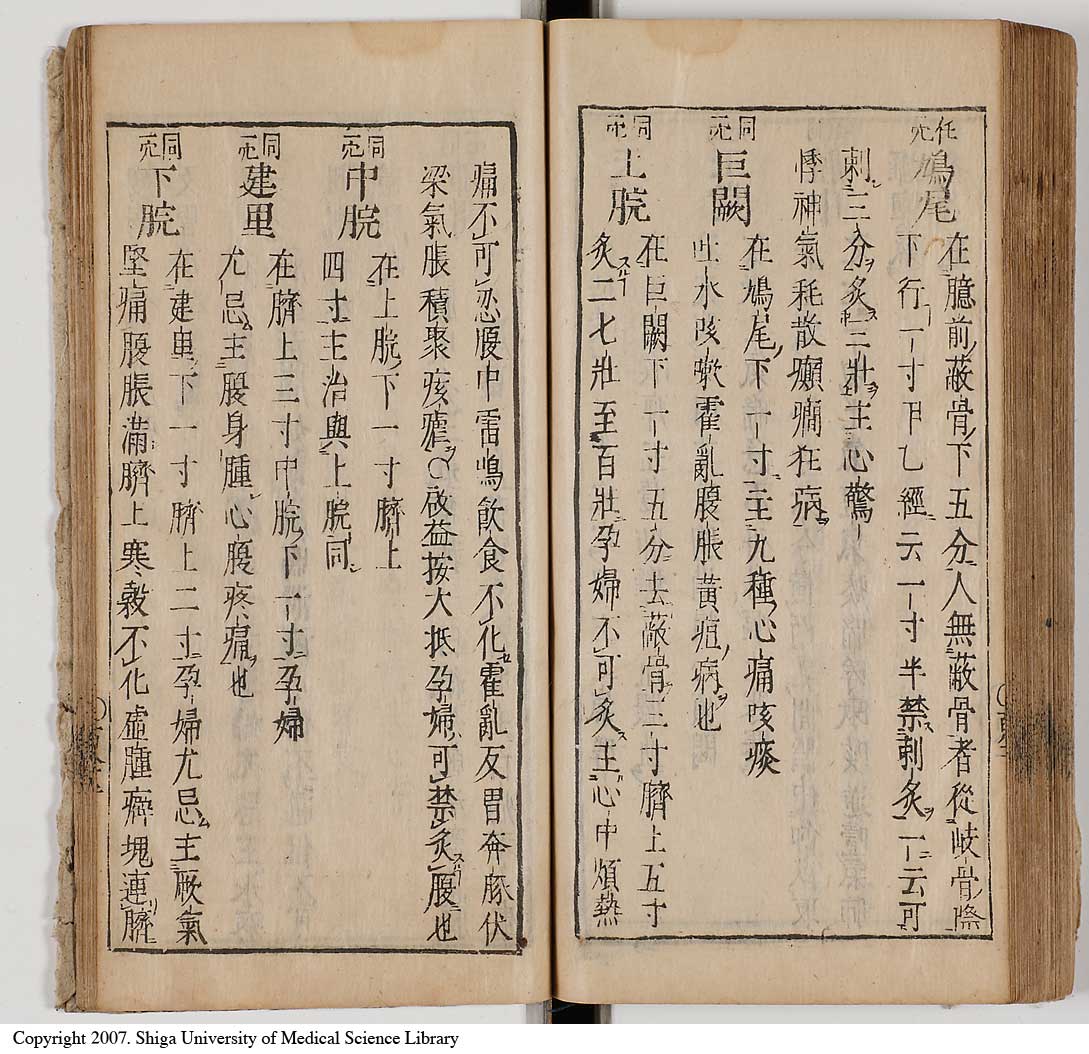 任穴
鳩尾
在臆前蔽骨下五分人無蔽骨者從岐骨際
下行一寸下乙經云一寸半禁刺灸一云可
刺三分灸三壯主心驚
悸神氣耗散癲癇狂病
同穴
巨闕
在鳩尾下一寸主九種心痛咳痰
吐水咳嗽霍亂腹脹黃疸病也
同穴
上脘
在巨闕下一寸五分去蔽骨三寸臍上五寸
灸二七壯至百壯孕婦不可灸主心中煩熱
痛不可忍腹中雷鳴飲食不化霍亂反胃奔豚伏
梁氣脹積聚痰瘧〇啟益按大抵孕婦可禁灸腹也
同穴
中脘
在上脘下一寸臍上
四寸主治與上脘同
同穴
建里
在臍上三寸中脘下一寸孕婦
尤忌主腹身腫心腹疼痛也
同穴
下脘
在建里下一寸臍上二寸孕婦尤忌主厥氣
堅痛腹脹滿臍上寒穀不化虛腫癖塊連臍
Copyright 2007. Shiga University of Medical Science Library